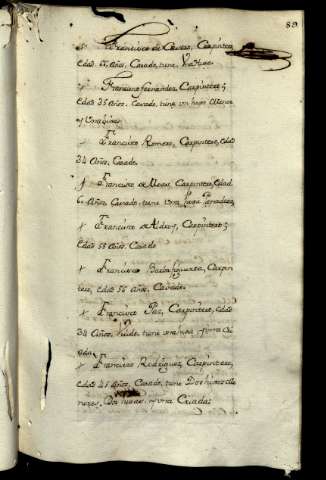 89
Francisco de Castro, Carpintero
Edad Años, Casado, tiene
Francisco fernandez, Carpintero;
edad 35 Años, Casado, tiene un hijo Menor
y
Francisco Romero, Carpintero, edad
34 Años, Casado.
Francisco de Carpintero, Edad
Años, Casado, tiene Una
Francisco de Carpintero;
edad 55 Años, Casado
Francisco Carpin
tero, edad 56 Años, Casado.
Francisco Paz, Carpintero, edad
34 Años, tiene una hija, y una Cri
ada
Francisco Rodriguez, Carpintero,
edad 41 Años, Casado, tiene Dos hijos Me
nores, Dos hijas, y una Criada